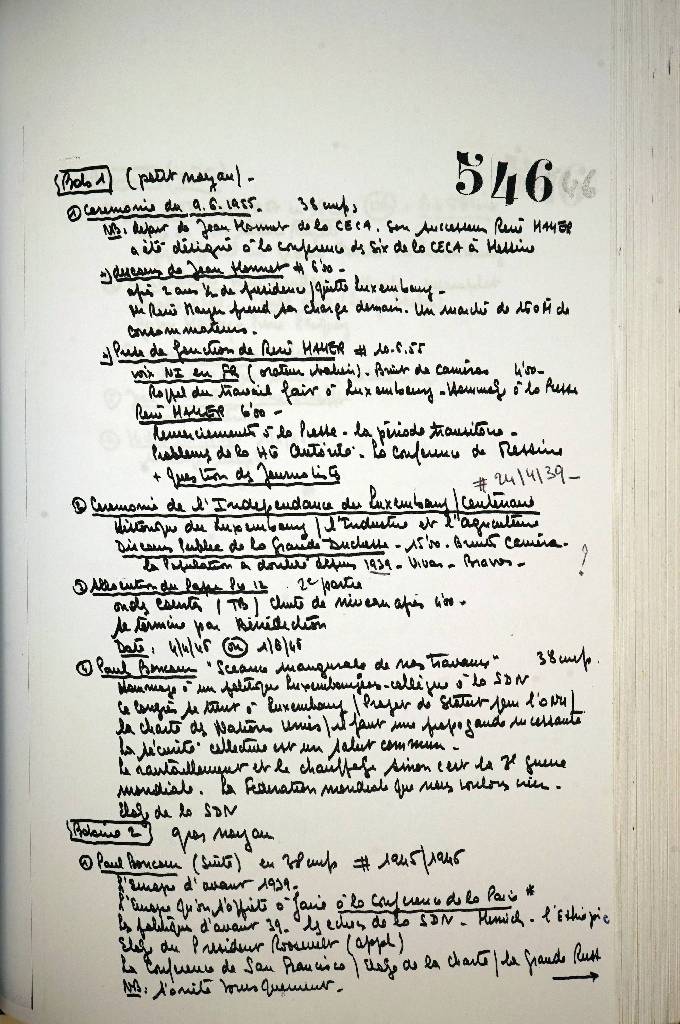 546
Bob 1 (petit noyau) -
① Ceremonie du 9.6.1955. 38 cm/s
NB: depart de Jean Monnet de la CECA. Son successeur René MAYER
a été désigné à la conference des Six de la CECA à Messine
*) discours de Jean Monnet # 6'00 -
après 2 ans ½ de presidence / quitte Luxembourg -
Mr René Mayer prend sa charge demain. Un marché de 150 M de
consommateurs.
*) Prise de fonction de René MAYER # 10.6.55
voix NI en FR (orateur italien). Bruit de caméras 4'50 -
Rappel du travail fait à Luxembourg - Hommage à la Presse
René MAYER 6'00 -
Remerciements à la Presse - la période transitoire -
Problemes de la Hte Autorité. La Conference de Messine
+ Question des Journalists
# 24/4/39 -
② Ceremonie de l'Independance du Luxembourg / Centenaire
Historique du Luxembourg / l'Industrie et l'agriculture
Discours Public de la Grande Duchesse - 15'00 - Bruits Caméra -
la Population a doublé depuis 1939 - Vivas - Bravos - ?
③ Allocution du Pape Pie 12 2e partie
ondes courtes (TB) Chute de niveau après 4'00 -
se termine par Bénédiction
Date: 4/4/45 ou 1/8/45
④ Paul Boncour "Seance inaugurale de nos travaux" 38 cm/s.
Hommage à un politique Luxembourgeois - collègue à la SDN
Ce Congrès se tient à Luxembourg / Projet de Statut pour l'ONU /
la charte des Nations Unies / il faut une propagande incessante
La sécurité collective est un salut commun -
Le ravitaillement et le chauffage sinon c'est la 3e guerre
mondiale. La Federation mondiale que nous voulons créer -
Eloge de la SDN
Bobine 2 gros noyau
① Paul Boncour (Suite) en 38 cm/s # 1945/1946
l'Europe d'avant 1939 -
l'Europe qu'on s'apprête à faire à la Conference de la Paix *
La politique d'avant 39. les echecs de la SDN - Munich - l'Ethiopie
Eloge du President Roosevelt (appl)
La Conference de San Francisco / Eloge de la charte / la grande Russ →
NB: s'arrête brusquement -